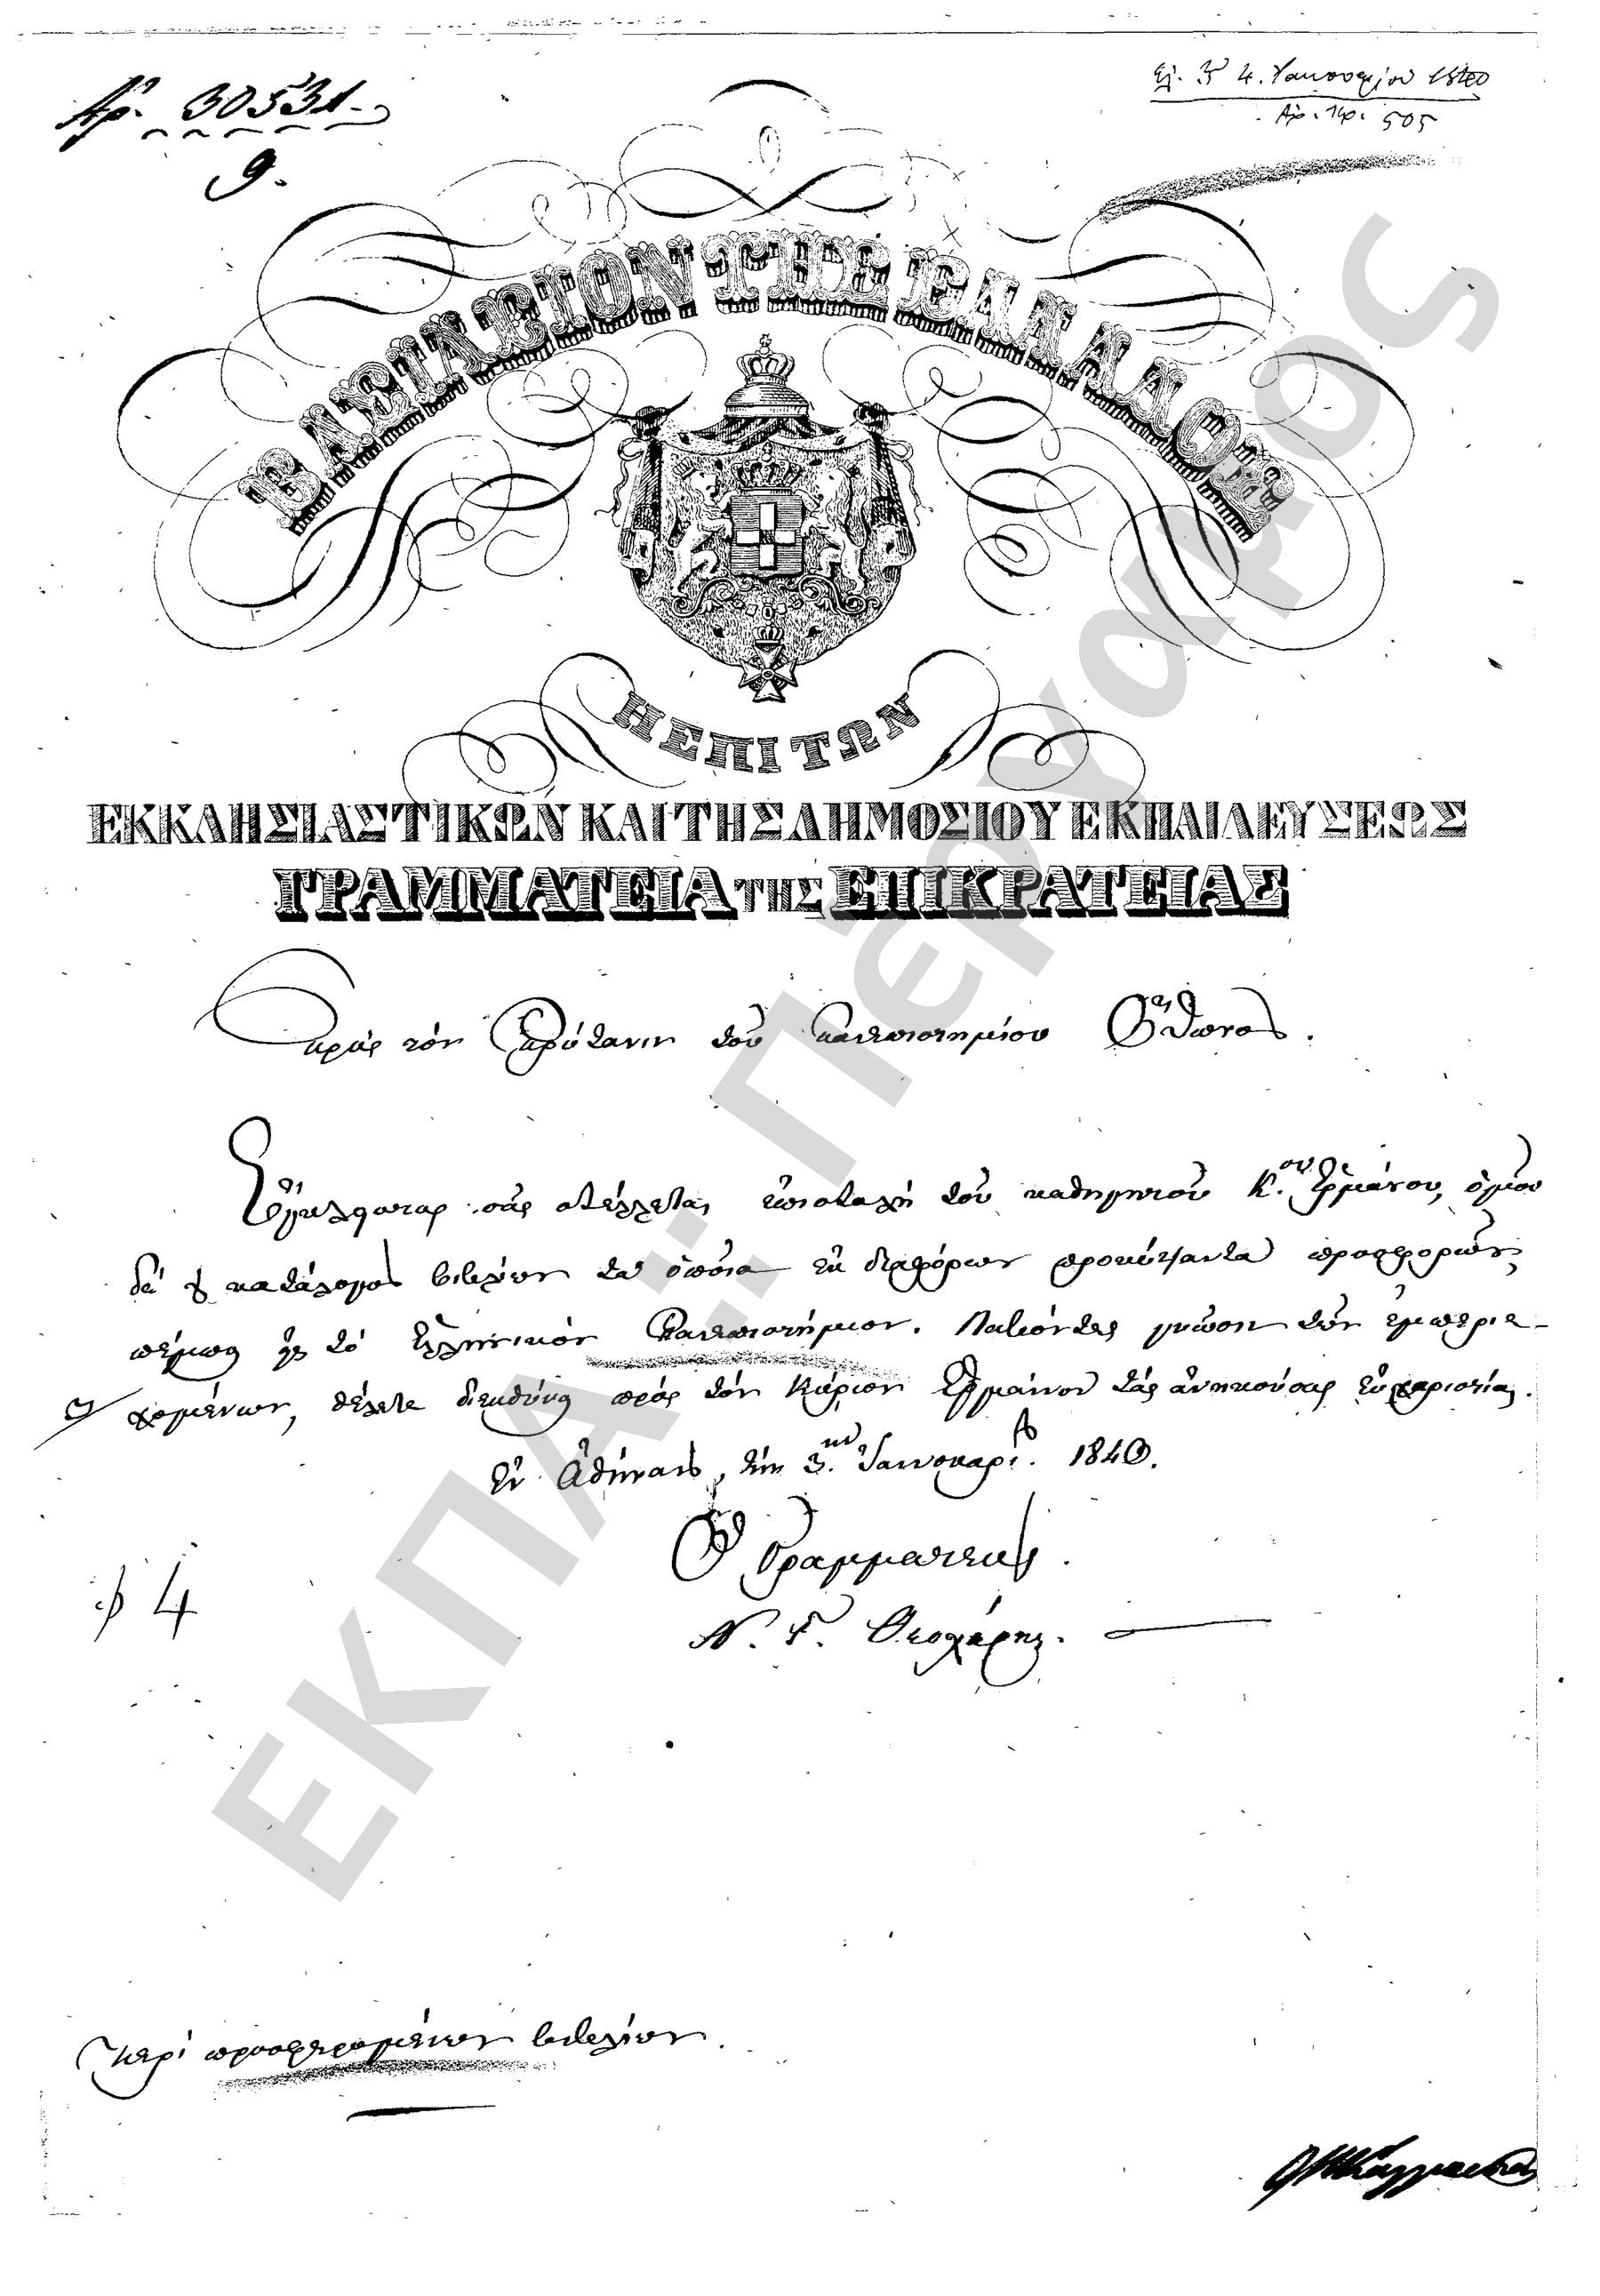 Αρ. 30531.
9.
Ελ. τῇ 4. Ἰανουαρίου 1840
Αρ. πρ. 505
ΒΑΣΙΛΕΙΟΝ ΤΗΣ ΕΛΛΑΔΟΣ
Η ΕΠΙ ΤΩΝ
ΕΚΚΛΗΣΙΑΣΤΙΚΩΝ ΚΑΙ ΤΗΣ ΔΗΜΟΣΙΟΥ ΕΚΠΑΙΔΕΥΣΕΩΣ
ΓΡΑΜΜΑΤΕΙΑ ΤΗΣ ΕΠΙΚΡΑΤΕΙΑΣ
Πρὸς τὸν Πρύτανιν τοῦ Πανεπιστημίου Ὄθωνος.
Ἐγκλείστως σᾶς στέλλεται ἐπιστολὴ τοῦ καθηγητοῦ Κ.ου Ἑρμάνου, ὁμοῦ
δὲ κατάλογος βιβλίων τὰ ὁποῖα ἐκ διαφόρων προκύψαντα προσφορῶν,
πέμπει εἰς τὸ Ἑλληνικὸν Πανεπιστήμιον. Λαβόντες γνῶσιν τῶν ἐμπεριε-
χομένων, θέλετε διευθύνει πρὸς τὸν Κύριον Ἑρμάννον τὰς ἀνηκούσας εὐχαριστίας.
Ἐν Ἀθήναις, τὴν 3.ην Ἰαννουαρί. 1840.
Ὁ Γραμματεὺς.
Ν. Γ. Θεοχάρης.
φ 4
Περὶ προσφερομένων βιβλίων.
ΕΚΠΑ:: Πέργαμος